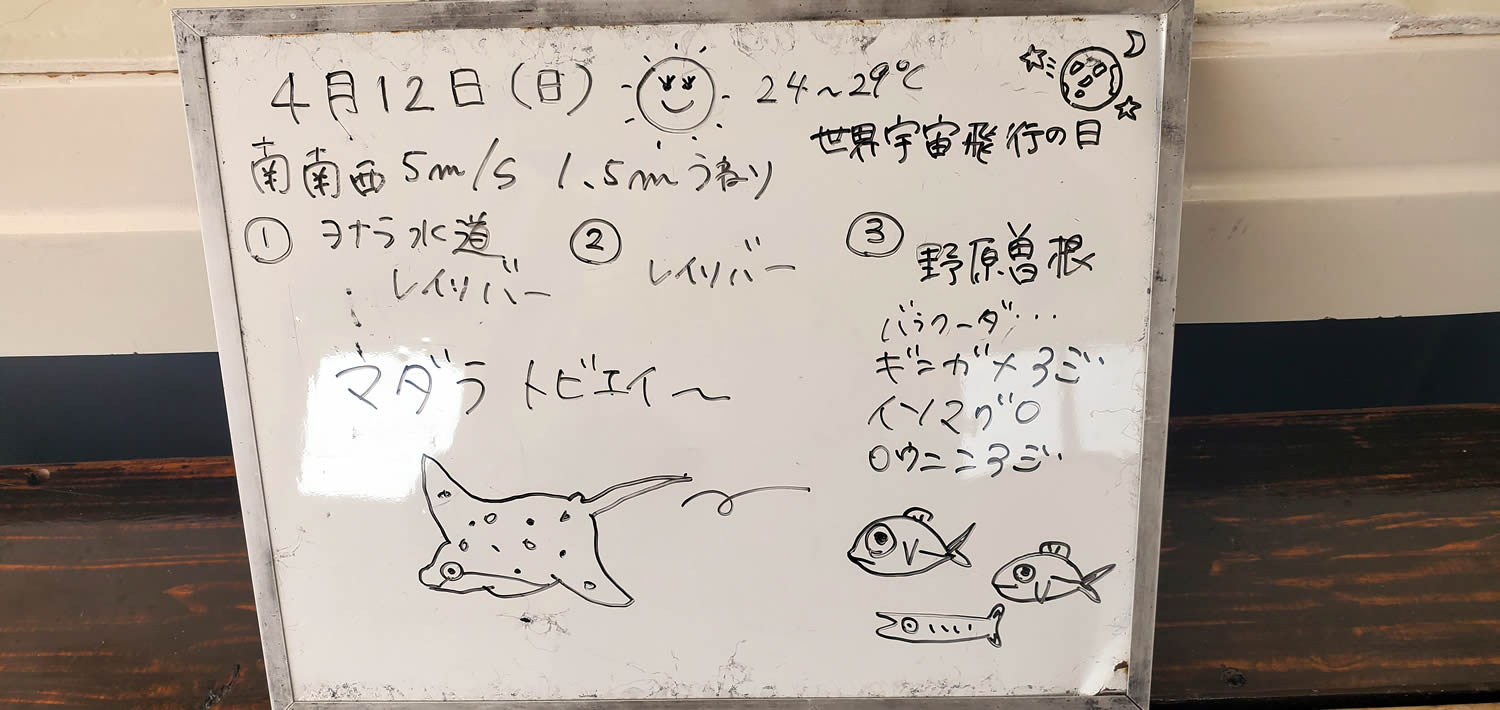 4月12日(日) 24～29℃
世界宇宙飛行の日
南南西 5m/s 1.5mうねり
① ヨナラ水道
レイリバー
② レイリバー
③ 野原曽根
マダラトビエイ～
バラクーダ・・・
ギンガメアジ・・
イソマグロ
ロウニンアジ・